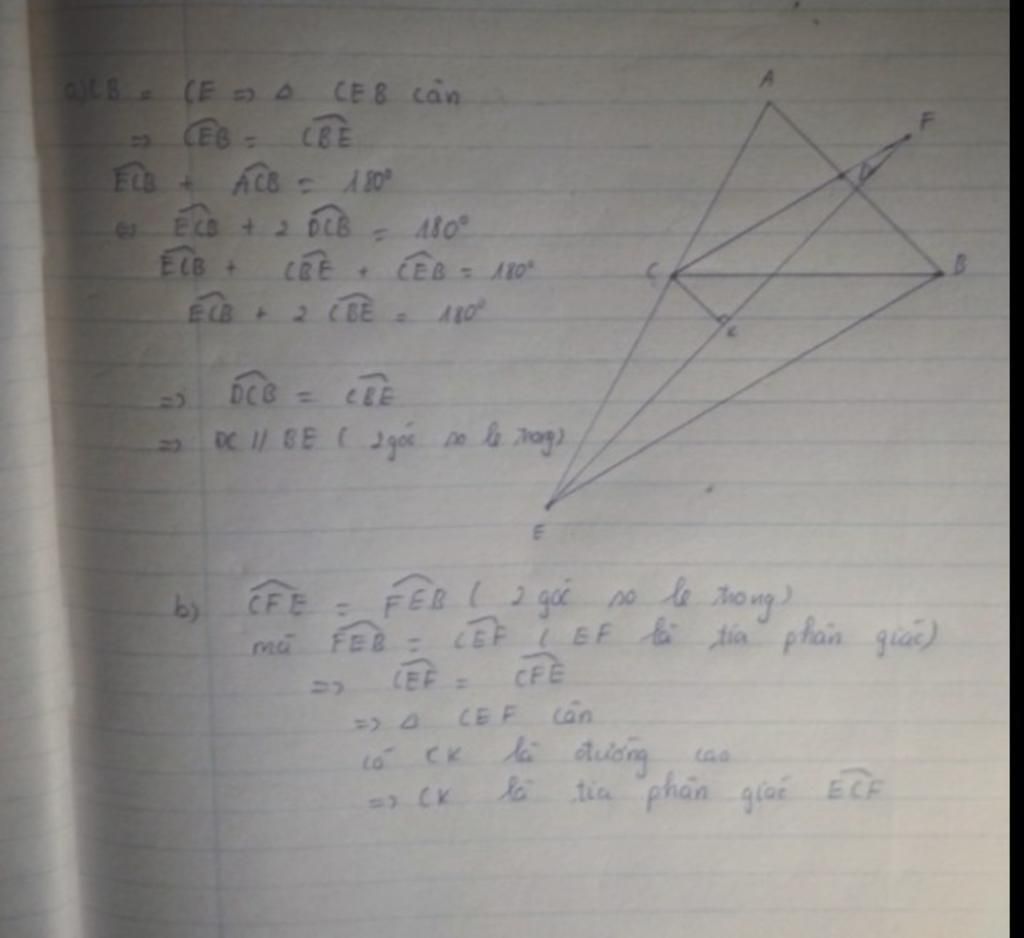 a) CB = CE => Δ CEB cân
=> \widehat{CEB} = \widehat{CBE}
\widehat{ECB} + \widehat{ACB} = 180°
<=> \widehat{ECB} + 2 \widehat{DCB} = 180°
\widehat{ECB} + \widehat{CBE} + \widehat{CEB} = 180°
\widehat{ECB} + 2 \widehat{CBE} = 180°
=> \widehat{DCB} = \widehat{CBE}
=> DC // BE ( 2 góc so le trong)
A
F
D
C
B
K
E
b) \widehat{CFE} = \widehat{FEB} ( 2 góc so le trong)
mà \widehat{FEB} = \widehat{CEF} ( EF là tia phân giác)
=> \widehat{CEF} = \widehat{CFE}
=> Δ CEF cân
có CK là đường cao
=> CK là tia phân giác \widehat{ECF}